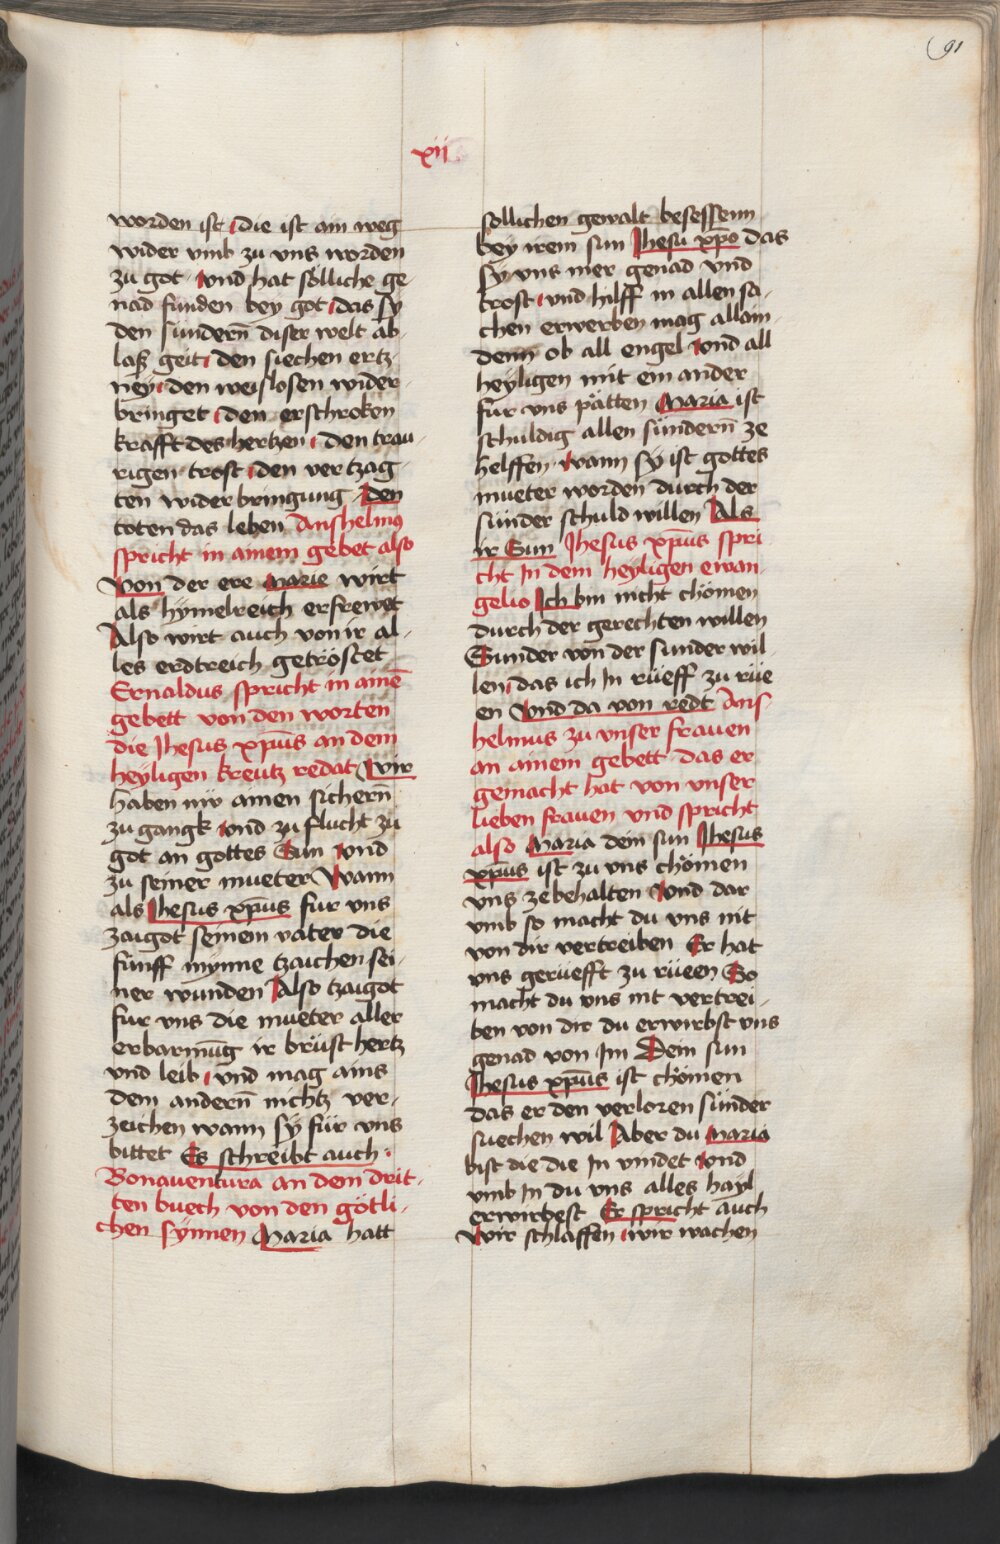 91
xij
worden ist die ist am weg
wider vmb zu vns worden
zu got Vnd hat sölliche ge
nad funden bey got das sy
den sündern̄ diser welt ab-
laß geit den siechen ertz-
ney den weislosen wider-
bringet den erschroken
krafft des hertzen den trau-
rigen trost den vertzag-
ten widerbringung Den
toten das leben Anshelmus
spricht in ainem gebet also
Von der ere Marie wirt
als hymelreich erfrewet
Also wirt auch von ir al-
les erdtreich getröstet
Ernaldus spricht in ainē
gebett von den worten
die Jhesus xp̄us an dem
heyligen kreutz redat Wir
haben nw ainen sichern̄
zu gangk Vnd zu flucht zu
got an gottes Sun Vnd
zu seiner mueter Wann
als Jhesus xp̄us fur vns
zaigot seinem vater die
fünff mynne tzaichen sei-
ner wunden Also tzaigot
fur vns die mueter aller
erbarmūg ir brüst hertz
vnd leib vnd mag ains
dem andern̄ nichtz ver-
zeichen wann sy für vns
bittet Es schreibt auch
Bonauentura an dem drit-
ten buech von den götli-
chen synnen Maria hatt
söllichen gewalt besessenn
bey irem sun Jhesu xp̄o das
sy vns mer genad vnd
trost vnd hilff in allen sa-
chen erwerben mag allain-
denn ob all engel Vnd all
heyligen mit ein ander
fur vns pätten Maria ist
schuldig allen sündern̄ ze
helffen Wann sy ist gottes
mueter worden durch der
sünder schuld willen Als
ir Sun Jhesus xp̄us spri
cht In dem heyligen ewan
gelio Ich bin nicht chömen
durch der gerechten willen
Sunder von der sunder wil-
len das ich In rüeff zu rüe
en Vnd da von redt Ans-
helmus zu vnser frauen
an ainem gebett das er
gemacht hat von vnser
lieben frauen vnd spricht
also Maria dein sun Jhesus
xp̄us ist zu vns chömen
vns ze behalten Vnd dar
vmb so macht du vns nit
von dir vertreiben Er hat
vns gerüefft zu rüeen So
macht du vns nit vertrei-
ben von dir du erwirbst vns
genad von Im Dein sun
Jhesus xp̄us ist chömen
das er den verloren sünder
suechen wil Aber du Maria
bist die die In vindet Vnd
vmb In du vns alles hayl
erwirbest Er spricht auch
Wir schlaffen wir wachen